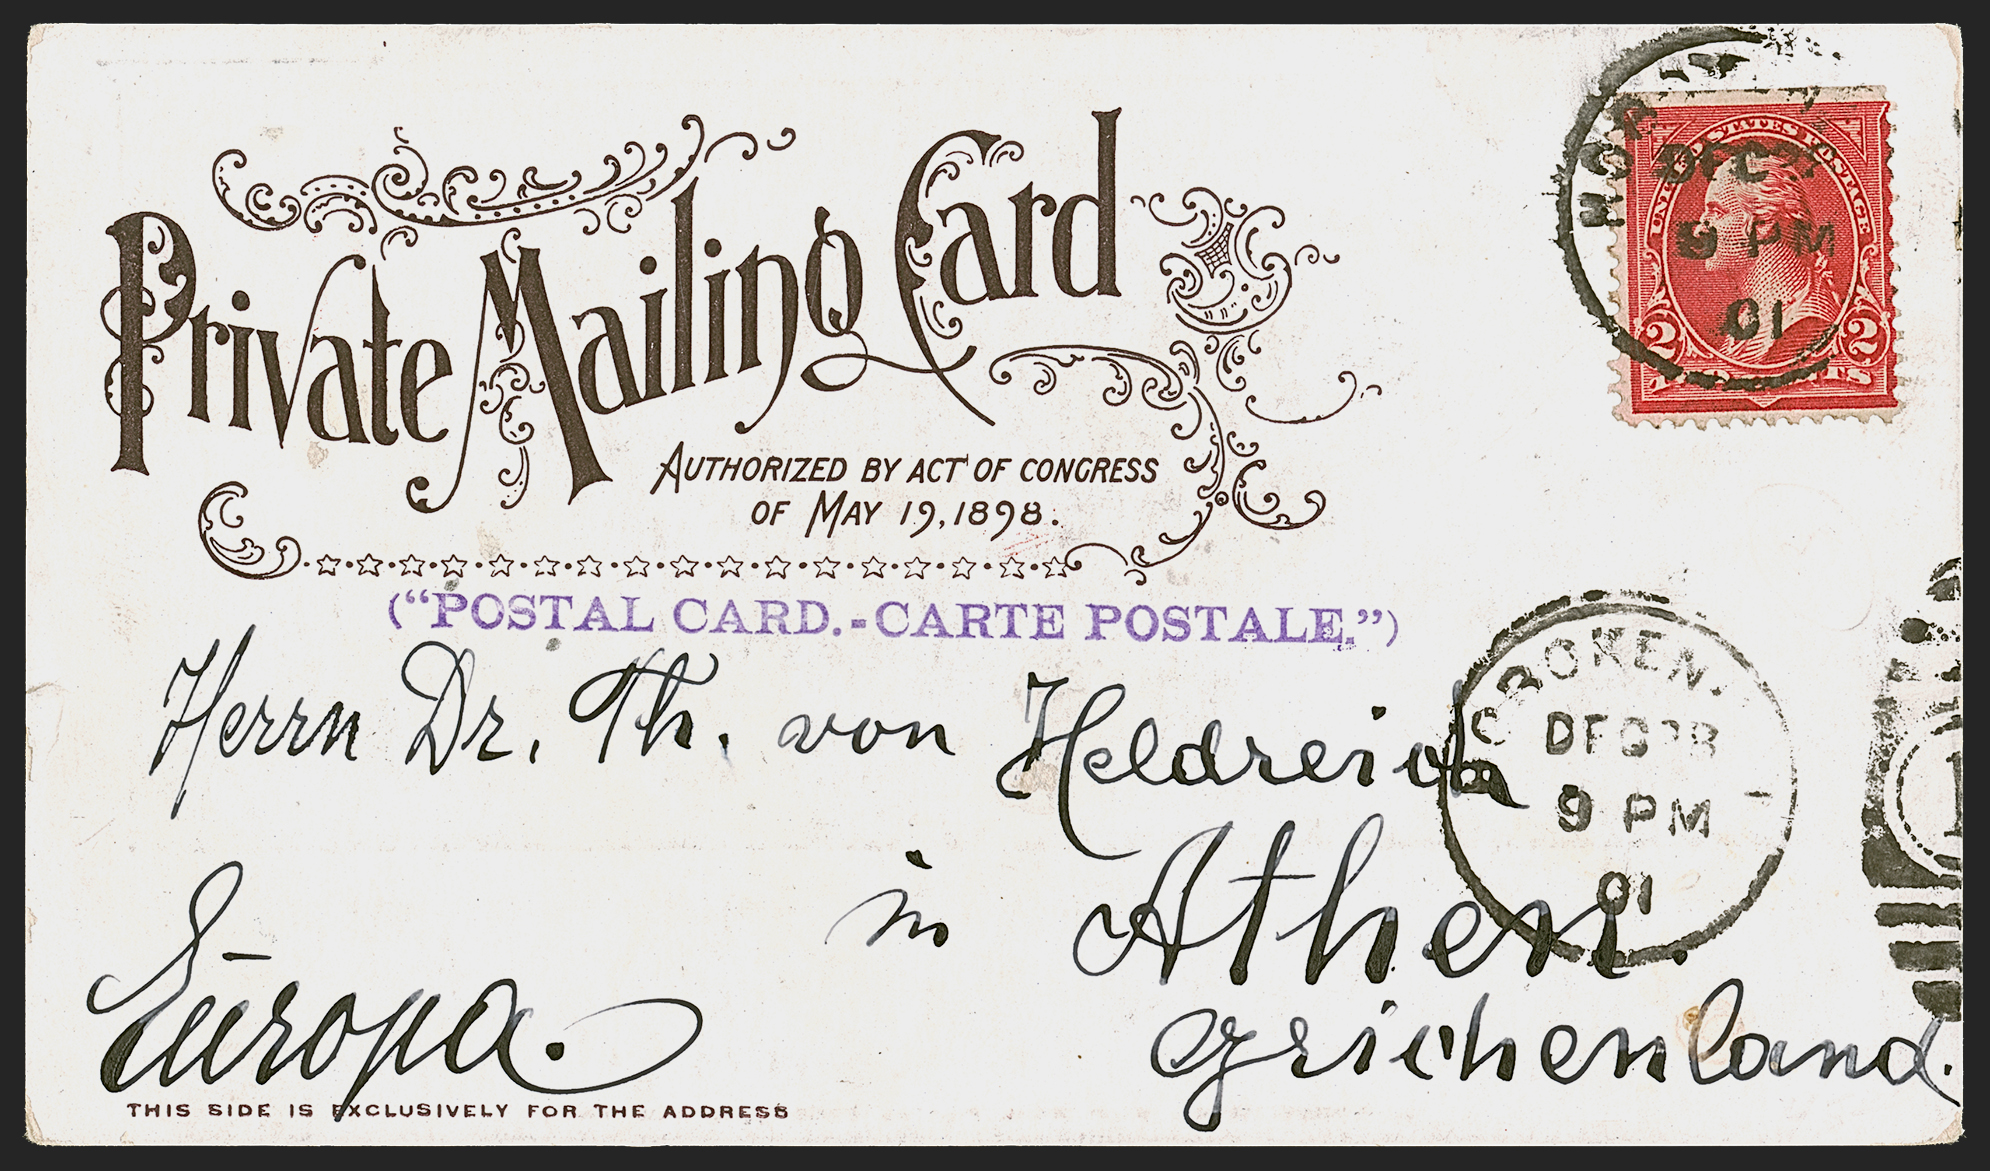 Private Mailing Card
AUTHORIZED BY ACT OF CONGRESS
OF MAY 19, 1898.
("POSTAL CARD.-CARTE POSTALE.")
UNITED STATES POSTAGE
2 2
DEC
9 PM
01
HOBOKEN
DEC
9 PM
01
1
Herrn Dr. Th. von Heldreich
in Athen.
Europa.
Griechenland.
THIS SIDE IS EXCLUSIVELY FOR THE ADDRESS